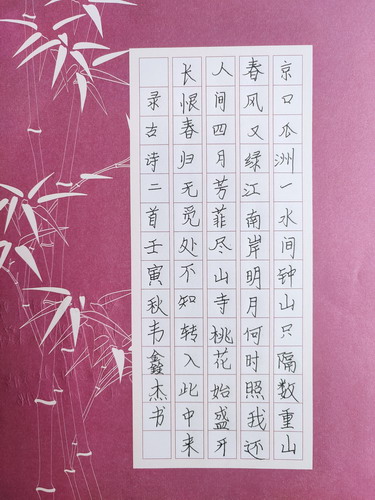 京口瓜洲一水间钟山只隔数重山
春风又绿江南岸明月何时照我还
人间四月芳菲尽山寺桃花始盛开
长恨春归无觅处不知转入此中来
录古诗二首壬寅秋韦鑫杰书